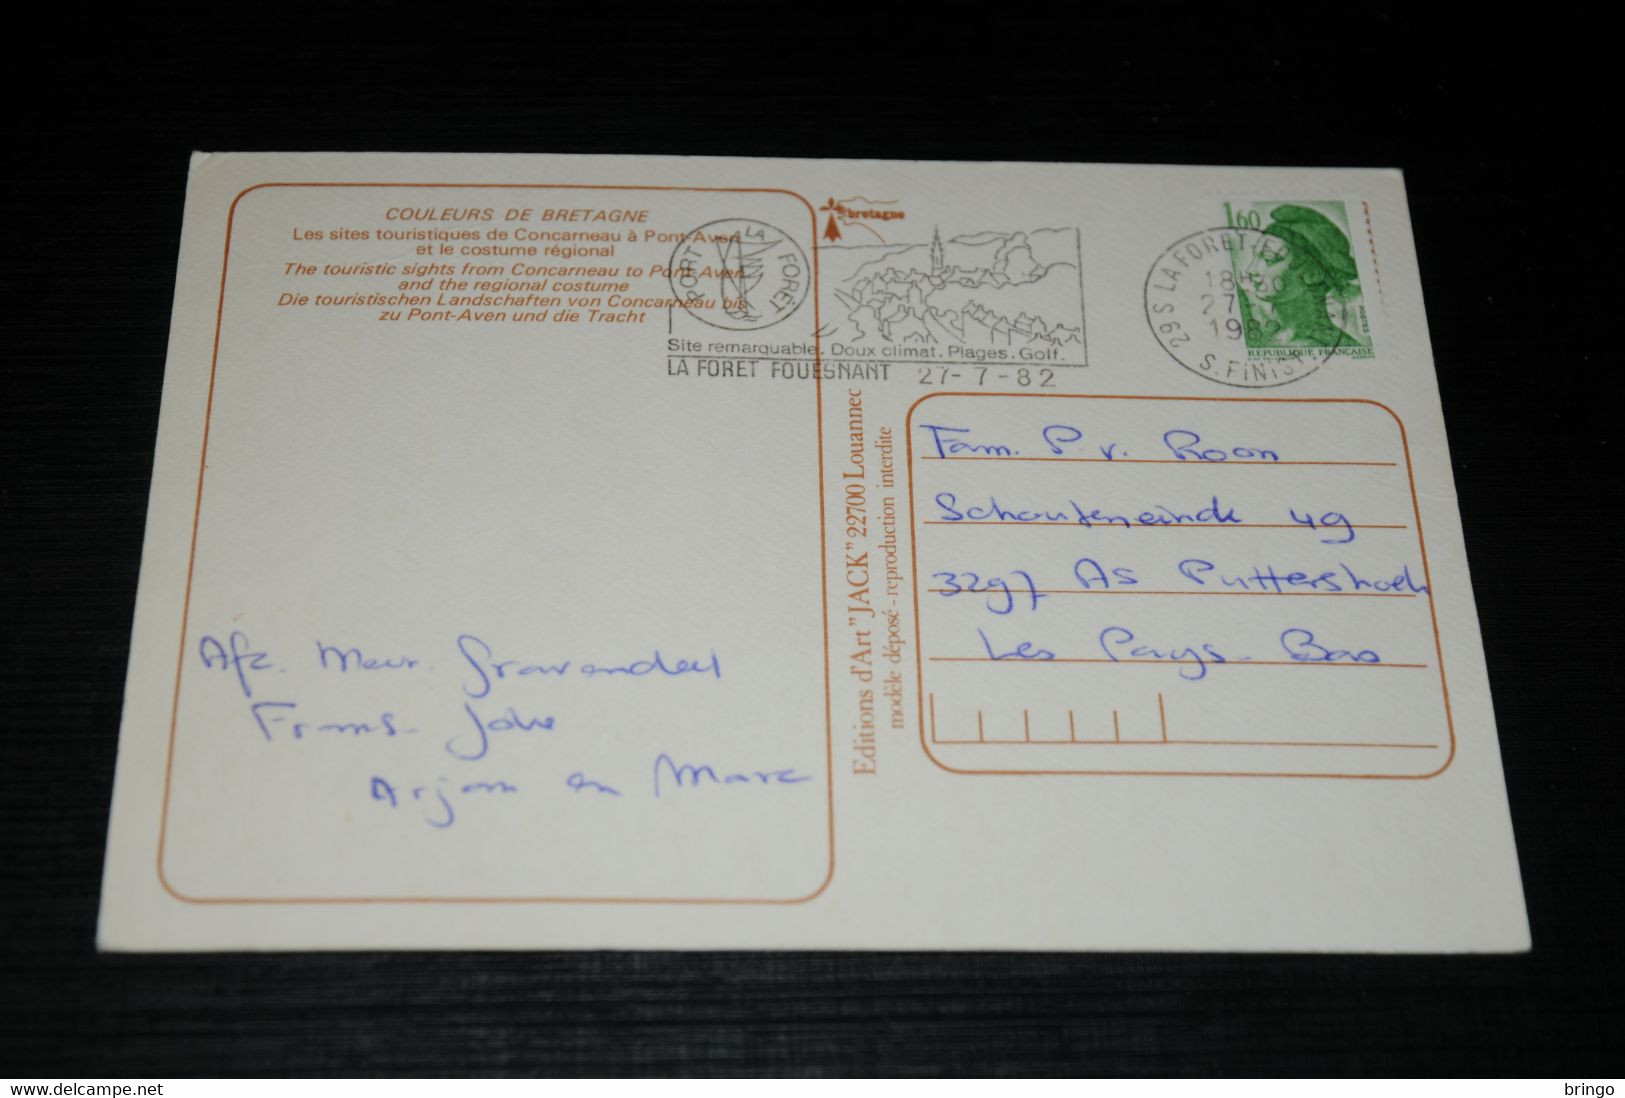 COULEURS DE BRETAGNE
Les sites touristiques de Concarneau à Pont-Aven
et le costume régional
The touristic sights from Concarneau to Pont-Aven
and the regional costume
Die touristischen Landschaften von Concarneau bis
zu Pont-Aven und die Tracht
PORT LA FORÊT
bretagne
Site remarquable. Doux climat. Plages. Golf.
LA FORET FOUESNANT 27-7-82
29 S LA FORET-FOUESNANT
18H30
27
1982
S. FINIST.
1,60
POSTES
REPUBLIQUE FRANÇAISE
Editions d'Art "JACK" 22700 Louannec
modèle déposé - reproduction interdite
Fam. P. v. Roon
Schouteneinde 49
3297 AS Puttershoek
Les Pays-Bas
Afz. Meur. Gravendeel
Frans-
Arjan en Marc
delcampe.net
bringo